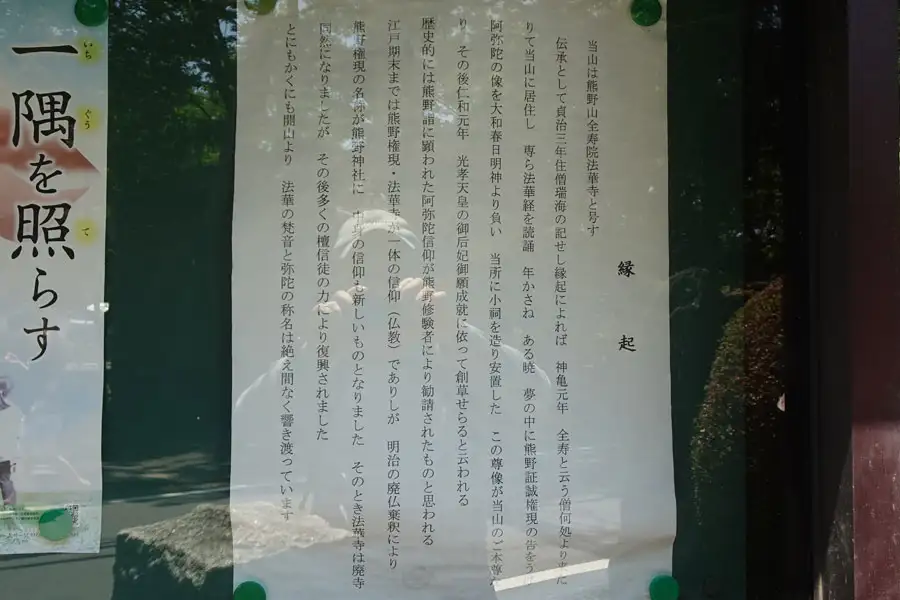 縁起
当山は熊野山全寿院法華寺と号す
伝承として貞治三年住僧瑞海の記せし縁起によれば 神亀元年 全寿と云う僧何処より来た
りて当山に居住し 専ら法華経を読誦 年かさね ある暁 夢の中に熊野証誠権現の告をう
阿弥陀の像を大和春日明神より負い 当所に小祠を造り安置した この尊像が当山のご本尊
り その後仁和元年 光孝天皇の御后妃御願成就に依って創草せらると云われる
歴史的には熊野詣に顕われた阿弥陀信仰が熊野修験者により勧請されたものと思われる
江戸期末までは熊野権現・法華寺が一体の信仰(仏教)でありしが 明治の廃仏棄釈により
熊野権現の名称が熊野神社に 中身の信仰も新しいものとなりました そのとき法華寺は廃寺
同然になりましたが その後多くの檀信徒の力により復興されました
とにもかくにも開山より 法華の梵音と弥陀の称名は絶え間なく響き渡っています
一隅を照らす
いち
ぐう
て